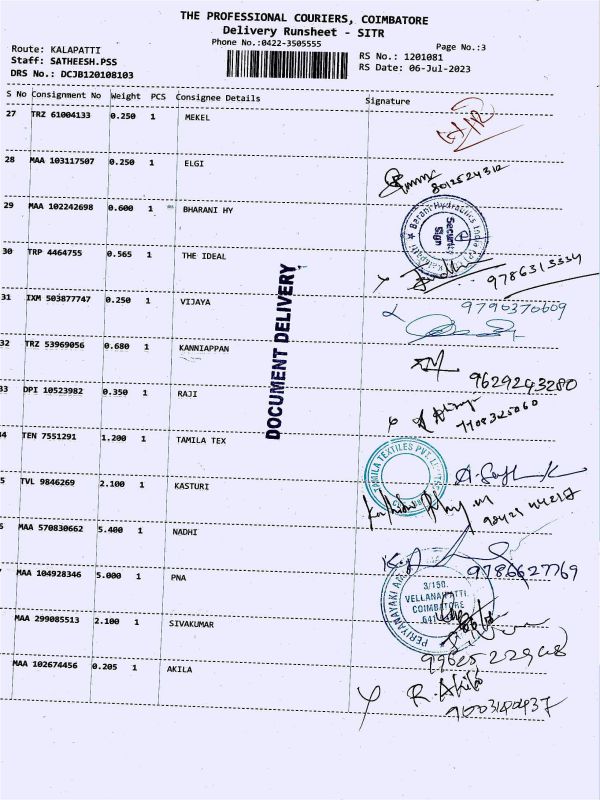 THE PROFESSIONAL COURIERS, COIMBATORE
Delivery Runsheet - SITR
Phone No.:0422-3505555
Page No.:3
Route: KALAPATTI
Staff: SATHEESH.PSS
DRS No.: DCJB120108103
RS No.: 1201081
RS Date: 06-Jul-2023
S No Consignment No Weight PCS Consignee Details Signature
27 TRZ 61004133 0.250 1 MEKEL
28 MAA 103117507 0.250 1 ELGI
8012524312
29 MAA 102242698 0.600 1 BHARANI HY
Barani Hydraulics India
Kalapatti
Security
Sign
30 TRP 4464755 0.565 1 THE IDEAL
9786313334
31 IXM 503877747 0.250 1 VIJAYA
9790370609
32 TRZ 53969056 0.680 1 KANNIAPPAN
9629243280
33 DPI 10523982 0.350 1 RAJI
DOCUMENT DELIVERY
4 TEN 7551291 1.200 1 TAMILA TEX
TAMILA TEXTILES PVT.
5 TVL 9846269 2.100 1 KASTURI
MAA 570830662 5.400 1 NADHI
9786627769
MAA 104928346 5.000 1 PNA
PERIYANAYAKI AM
3/150.
VELLANAPATTI.
COIMBATORE
641
MAA 299085513 2.100 1 SIVAKUMAR
MAA 102674456 0.205 1 AKILA
R. Akila